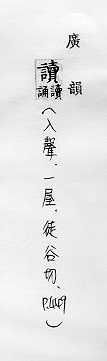 廣韻
讀
誦讀
(入聲．一屋．徒谷切．P.449)